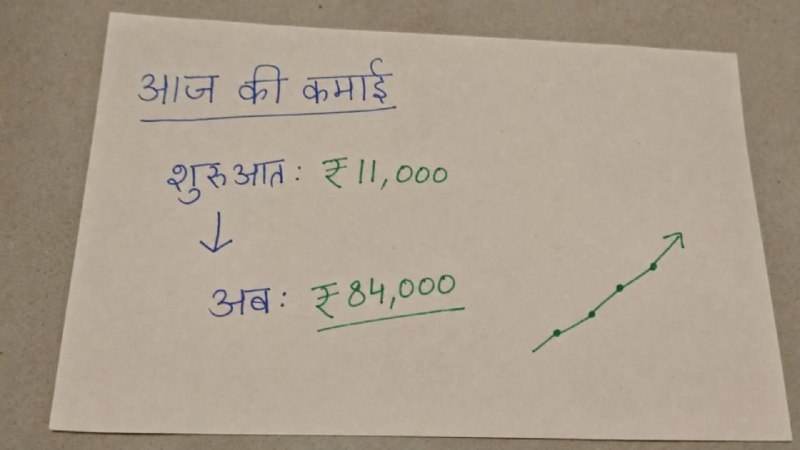 आज की कमाई
शुरुआत: ₹11,000
↓
अब: ₹84,000